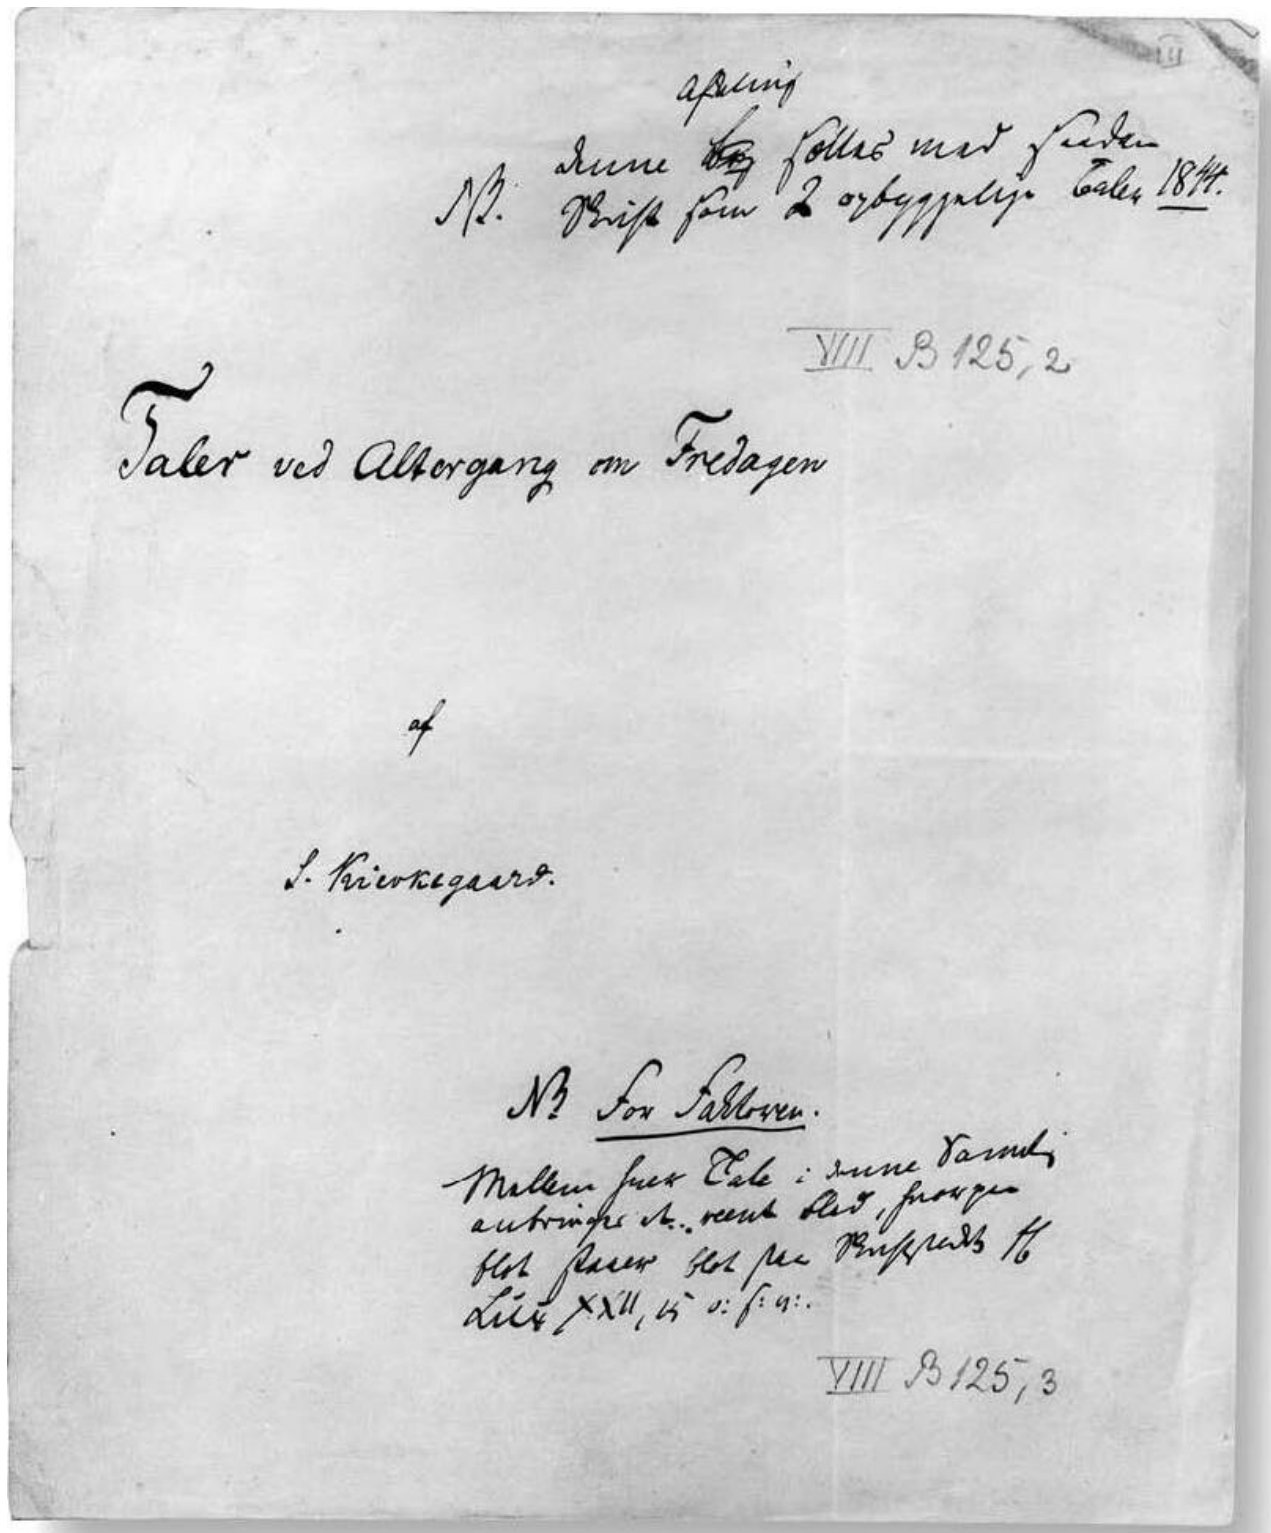 III
Afdeling
NB. denne sættes med samme
Skrift som 2 opbyggelige Taler 1844.
VIII B 125, 2
Taler ved Altergang om Fredagen
af
S. Kierkegaard.
NB For Faktoren.
Mellem hver Tale i denne Samling
anbringes et reent Blad, hvorpaa
blot staaer blot paa Skriftstedet
Luc XXII, 15 o: s: v:.
VIII B 125, 3